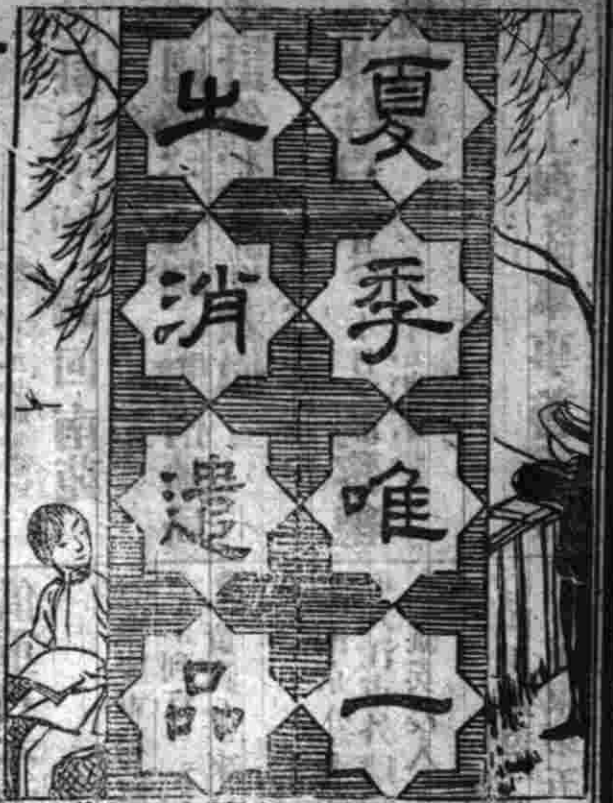 夏季唯一
之消遣品